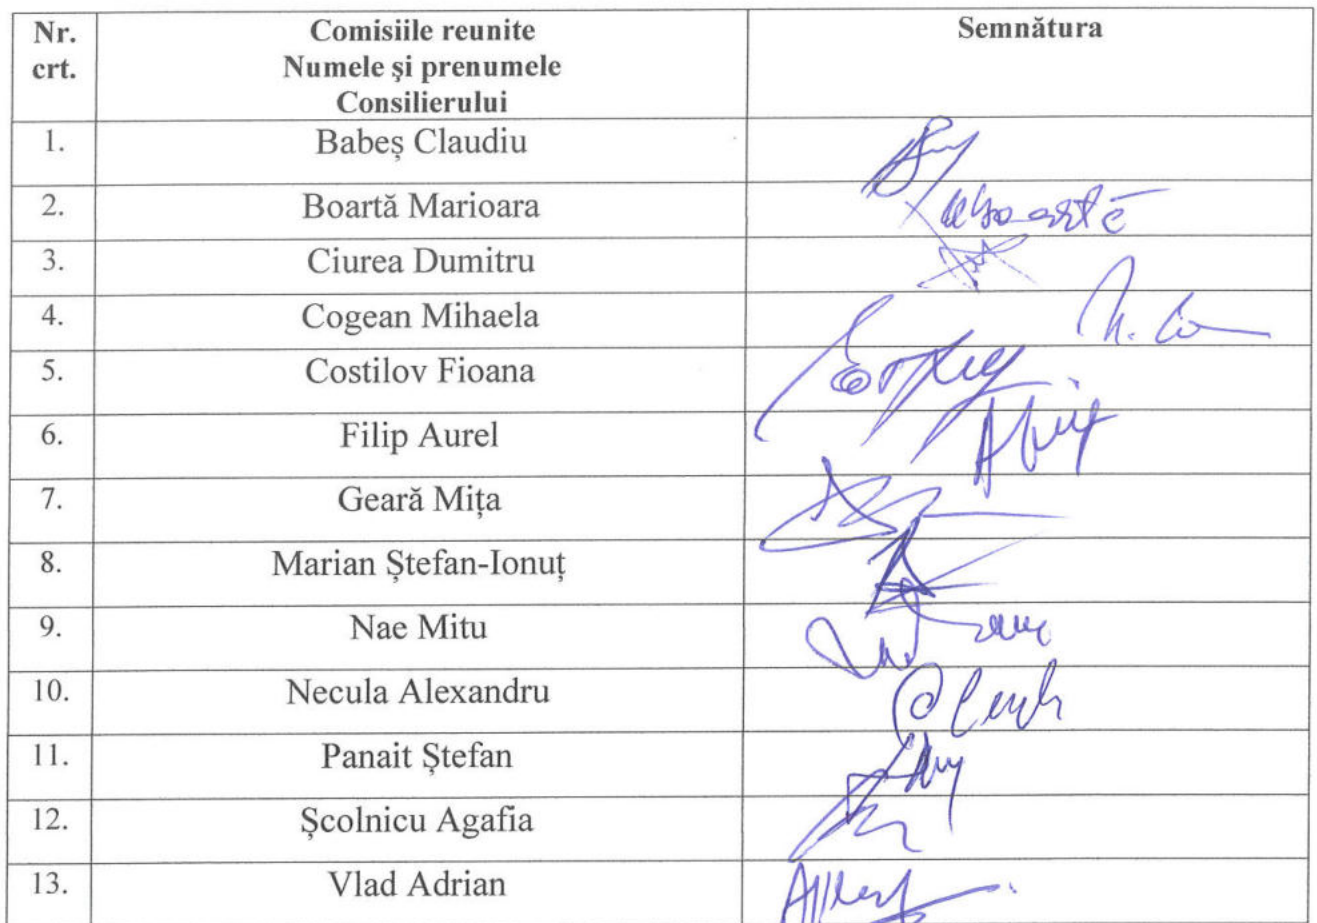 Nr. crt.
Comisiile reunite
Numele şi prenumele
Consilierului
Semnătura
1. Babeș Claudiu
2. Boartă Marioara
3. Ciurea Dumitru
4. Cogean Mihaela
5. Costilov Fioana
6. Filip Aurel
7. Geară Mița
8. Marian Ștefan-Ionuț
9. Nae Mitu
10. Necula Alexandru
11. Panait Ștefan
12. Școlnicu Agafia
13. Vlad Adrian